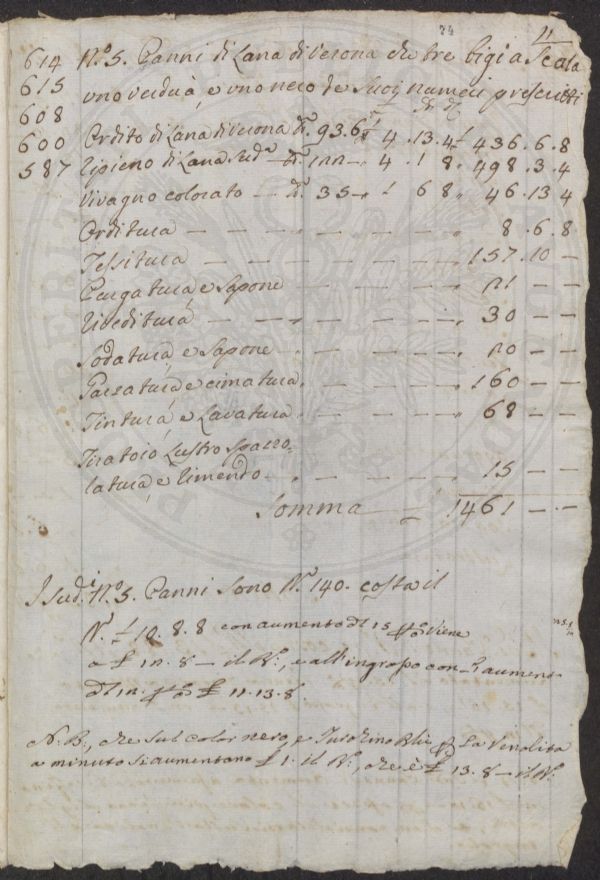 74 11
614 N.o 5. Panni di Lana di Verona che tre bigi a Scala
615 uno verdua, e uno nero de Suoi numeri prescritti
608
600 Ordito di Lana di Verona ℔ 93.6 £ 4.13.4 £ 436.6.8
587 Ripieno di Lana Sud.a — ℔ 122 — 4.1.8 „ 498.3.4
Vivagno colorato — ℔ 35 — „ 1.6.8 „ 46.13.4
Orditura — — — — — „ 8.6.8
Tessitura — — — — — „ 157.10 —
Purgatura e Sapone — — — — „ 21 — —
Riveditura — — — — — „ 30 — —
Sodatura e Sapone — — — — „ 20 — —
Parzatura e cimatura — — — — „ 160 — —
Tintura e Lavatura — — — — „ 68 — —
Tiratoio Lustro Spazzo-
latura e Rimendo — — — — „ 15 — —
Somma — £ 1461 — . —
I Sud.i N.o 5. Panni Sono N.o 140. costa il
N.o £ 10.8.8 con aumento di 15 viene
a £ 12.8 — il N.o, e all'ingrosso con l'aumen-
di 12. £ 11.13.8
N.B., che sul color nero, e Turchino Blu La Vendita
a minuto si aumentano £ 1. il N.o, che è £ 13.8 — il N.o